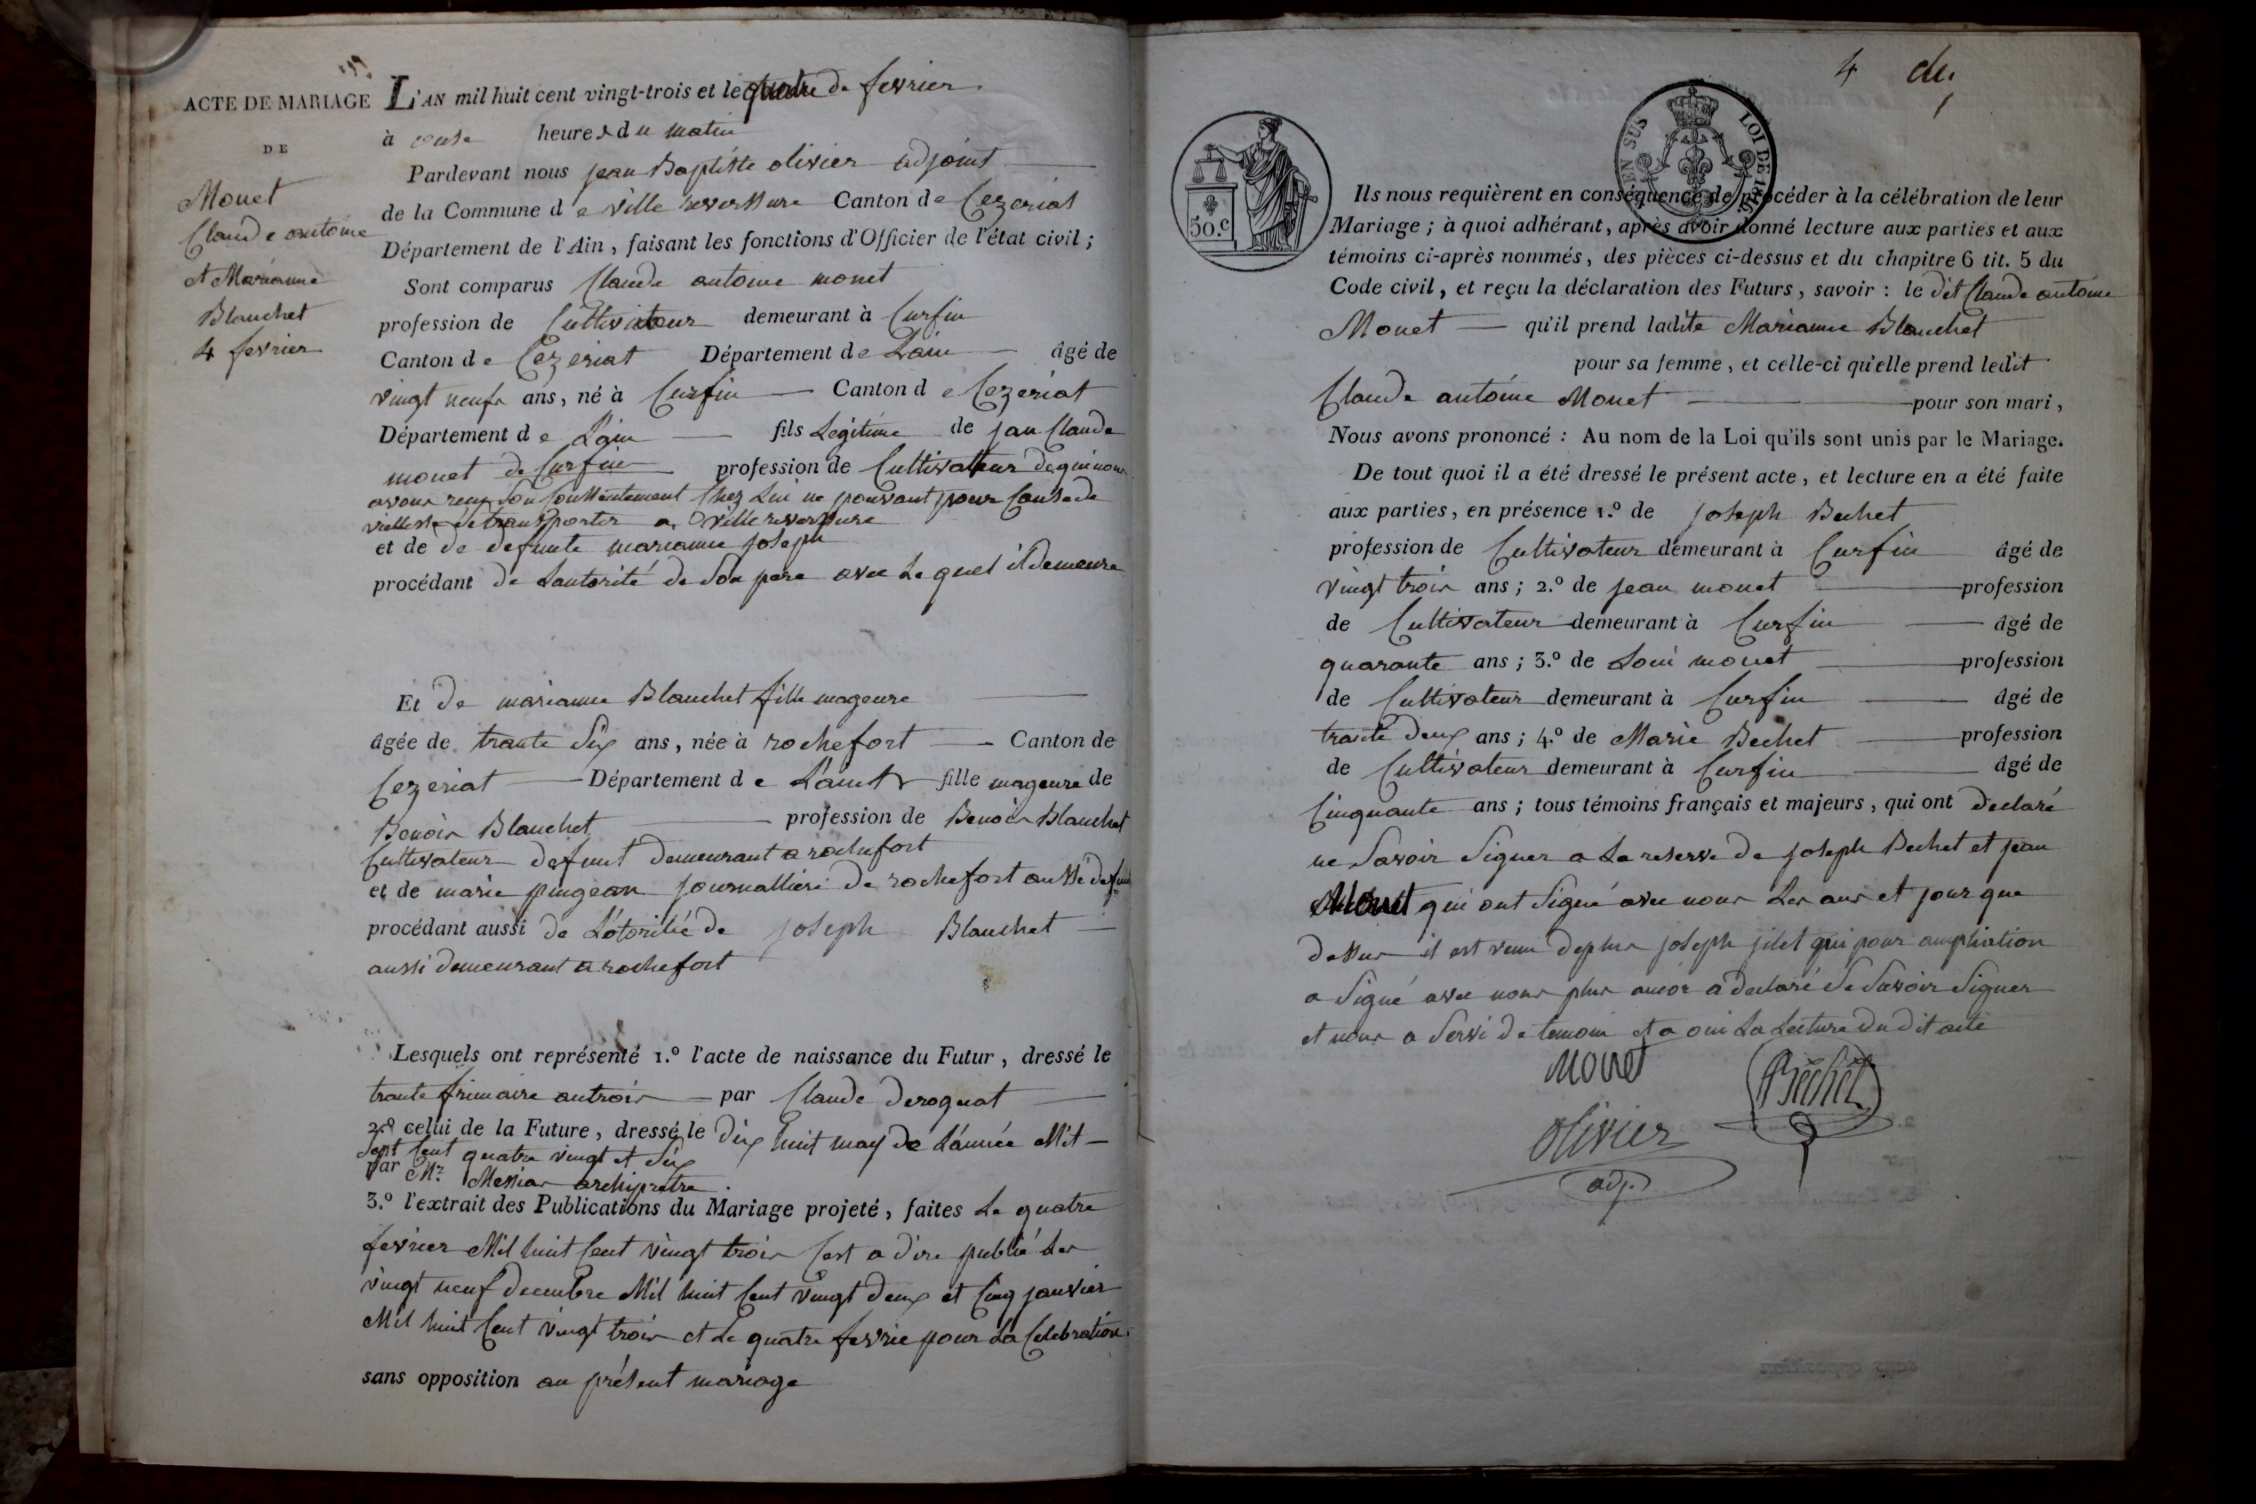 ACTE DE MARIAGE
DE
Monet
Claude antoine
et Marianne
Blanchet
4 fevrier
L'AN mil huit cent vingt-trois et le quatre de fevrier
à onse heures du matin
Pardevant nous jean Baptiste olivier adjoint
de la Commune de ville reverssure Canton de Cezeriat
Département de l'Ain, faisant les fonctions d'Officier de l'état civil;
Sont comparus Claude antoine monet
profession de Cultivateur demeurant à Curfin
Canton de Cezeriat Département de Lain âgé de
vingt neufs ans, né à Curfin Canton de Cezeriat
Département de Lain fils Legitime de jan Claude
monet de Curfin profession de Cultivateur de qui nous
avons reçu son Conssentement Chez Lui ne pouvant pour Cause de
viellesse se transporter a villereverssure
et de de defunte marianne joseph
procédant de Lautorité de Son pere avec Le quel il demeure
Et de marianne Blanchet fille mageure
âgée de trante Six ans, née à rochefort Canton de
Cezeriat Département de Lain fille mageure de
Benois Blanchet profession de Benois Blanchet
Cultivateur defunt demeurant a rochefort
et de marie pingeon journalliere de rochefort aussi defunte
procédant aussi de L'otorité de joseph Blanchet
aussi demeurant a rochefort
Lesquels ont représenté 1.º l'acte de naissance du Futur, dressé le
trante frimaire an trois par Claude deroquat
2.º celui de la Future, dressé le dix huit may de L'année Mil
Sept Cent quatre vingt et Six
par Mr Messiar archiprétre
3.º l'extrait des Publications du Mariage projeté, faites Le quatre
fevrier Mil huit Cent vingt trois Cest a dire publié Les
vingt neuf decembre Mil huit Cent vingt deux et Cinq janvier
Mil huit Cent vingt trois et Le quatre fevrie pour La Celebration
sans opposition au présent mariage
4 du
50.c
EN SUS LOI DE
Ils nous requièrent en conséquence de procéder à la célébration de leur
Mariage; à quoi adhérant, après avoir donné lecture aux parties et aux
témoins ci-après nommés, des pièces ci-dessus et du chapitre 6 tit. 5 du
Code civil, et reçu la déclaration des Futurs, savoir : le dit Claude antoine
Monet qu'il prend ladite Marianne Blanchet
pour sa femme, et celle-ci qu'elle prend ledit
Claude antoine Monet pour son mari,
Nous avons prononcé : Au nom de la Loi qu'ils sont unis par le Mariage.
De tout quoi il a été dressé le présent acte, et lecture en a été faite
aux parties, en présence 1.º de joseph Bechet
profession de Cultivateur demeurant à Curfin âgé de
vingt trois ans; 2.º de jean monet profession
de Cultivateur demeurant à Curfin âgé de
quarante ans; 3.º de Loui monet profession
de Cultivateur demeurant à Curfin âgé de
trante deux ans; 4.º de Marie Bechet profession
de Cultivateur demeurant à Curfin âgé de
Cinquante ans; tous témoins français et majeurs, qui ont declaré
ne Savoir Signer a La reserve de joseph Bechet et jean
Monet qui ont Signé avec nous Les ans et jour que
dessus il est venu deplus joseph jilet qui pour ampliation
a Signé avec nous plus ancor a declaré Se Savoir Signer
et nous a Servi de temoin et a oui La Lecture du dit acte
Monet
Bechet
olivier
adj.